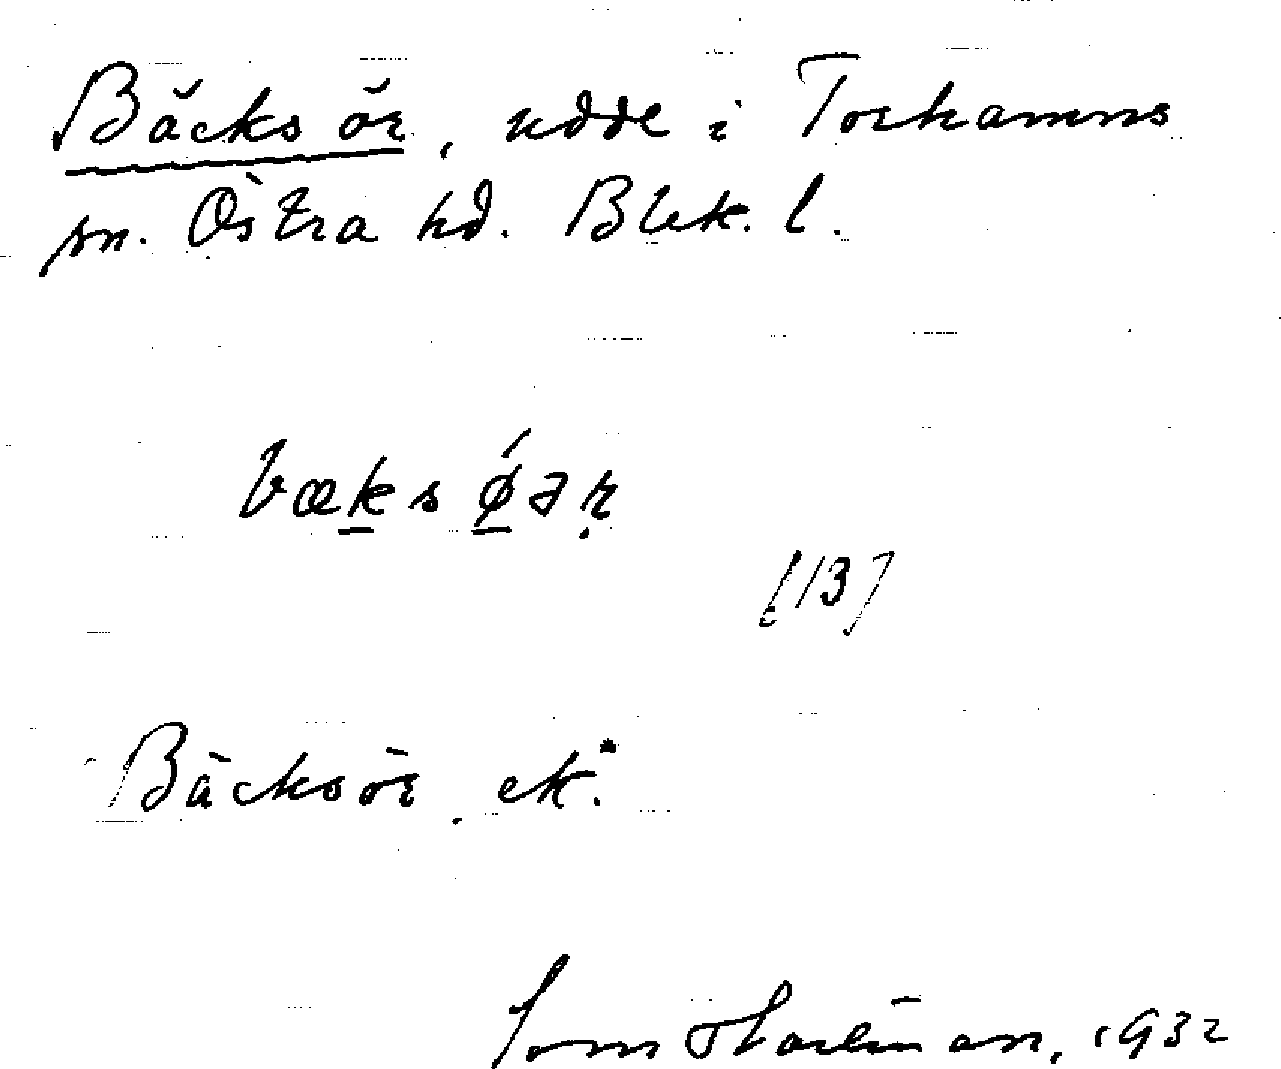 Bäcksör, udde i Torhamns
sn. Östra hd. Blek. l.
bæks ǿəṛ
[13]
Bäcksör. ek.
Hartman, 1932